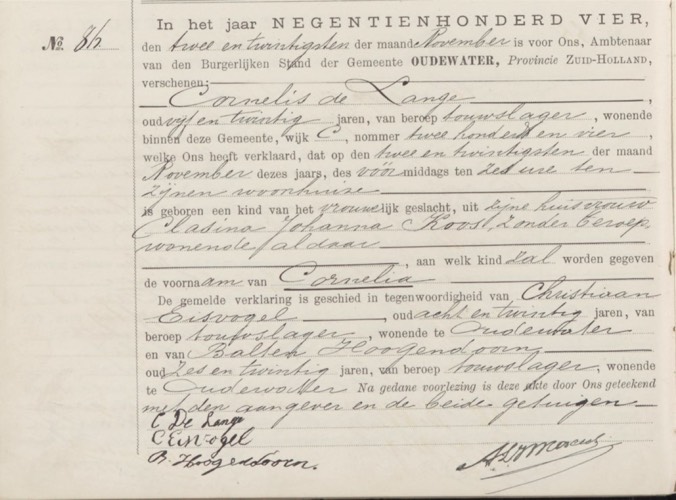 In het jaar NEGENTIENHONDERD VIER,
No. 86
den twee en twintigsten der maand November is voor Ons, Ambtenaar
van den Burgerlijken Stand der Gemeente OUDEWATER, Provincie ZUID-HOLLAND,
verschenen:
Cornelis de Lange,
oud vijf en twintig jaren, van beroep touwslager, wonende
binnen deze Gemeente, wijk C, nommer twee honderd en vier,
welke Ons heeft verklaard, dat op den twee en twintigsten der maand
November dezes jaars, des vóórmiddags ten zes ure ten
zijnen woonhuize
is geboren een kind van het vrouwelijk geslacht, uit zijne huisvrouw
Clasina Johanna Koos, zonder beroep,
wonende aldaar
, aan welk kind zal worden gegeven
de voornaam van Cornelia
De gemelde verklaring is geschied in tegenwoordigheid van Christiaan
Eisvogel, oud acht en twintig jaren, van
beroep touwslager, wonende te Oudewater
en van Balten Hoogendoorn
oud zes en twintig jaren, van beroep touwslager, wonende
te Oudewater Na gedane voorlezing is deze akte door Ons geteekend
met den aangever en de beide getuigen
C De Lange
C Eisvogel
B. Hoogendoorn.